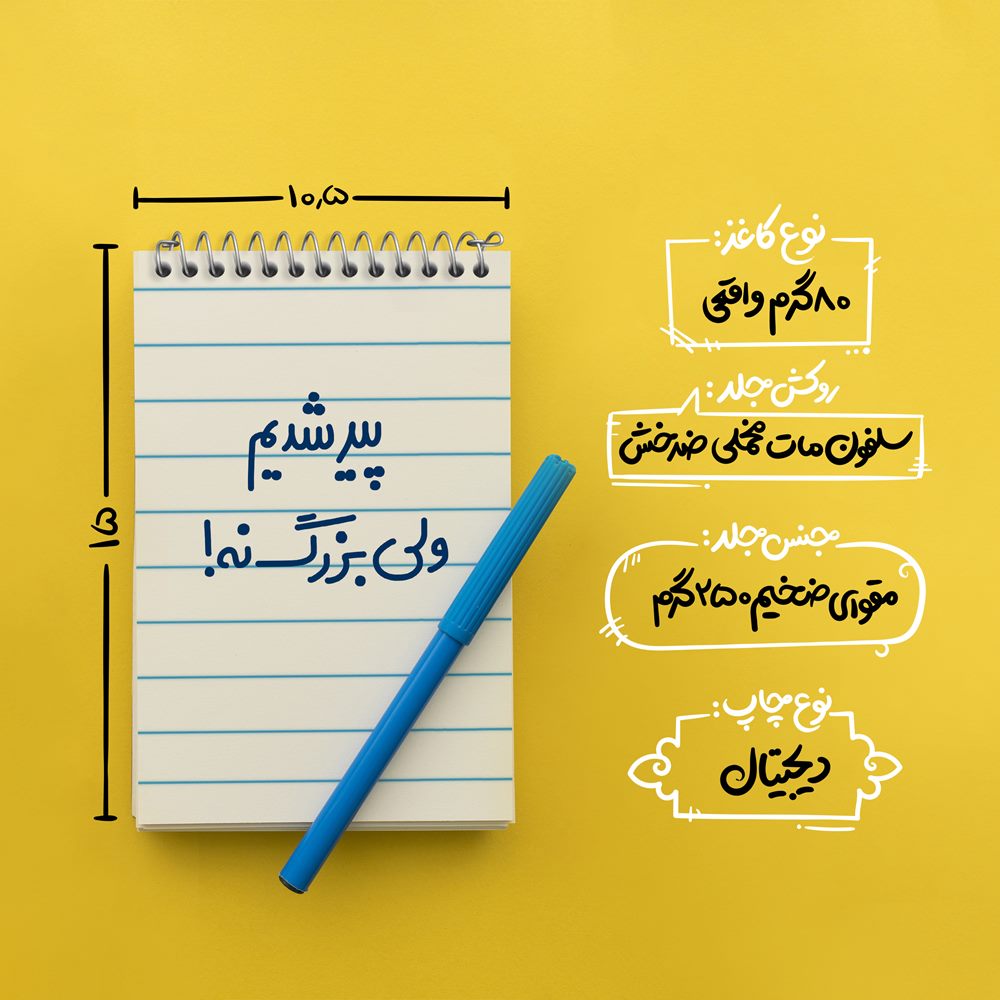 ۱۰,۵
۱۵
پیر شدیم
ولی بزرگ نه!
نوع کاغذ:
۸۰ گرم واقعی
روکش جلد:
سلفون مات مخملی ضدخش
جنس جلد:
مقوای ضخیم ۲۵۰ گرم
نوع چاپ:
دیجیتال